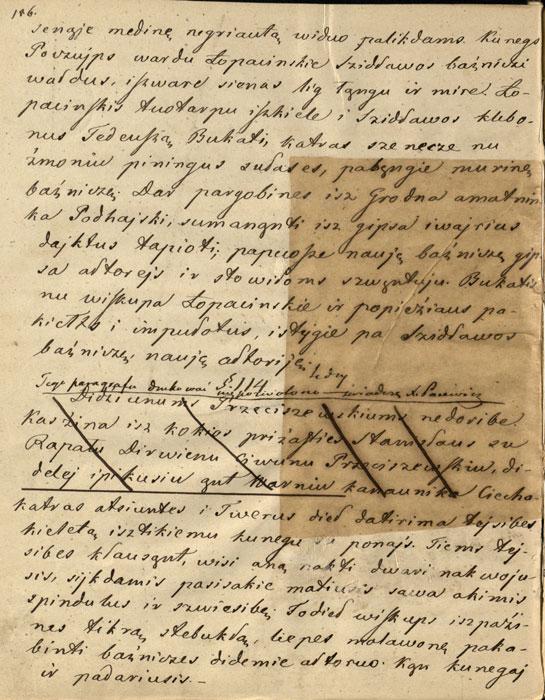 186.
senąję medinę negriautą widuo palikdams. Kunegs
Powzups wardu Łopacinskie Szidławos bażniczi
waldus, iszware sienas lig łangu ir mire. Ło-
pacinskis tuotarpu iszkiele i Szidławos klebo-
nus Tedeuszą Bukati, katras sze necze nu
żmoniu piningus sudases, pabengie murinę
bażniczę. Dar pargobines isz Grodna amatnin-
ka Podhajski, sumanąnti isz gipsa iwajrius
dajktus tapioti, papuosze naują bażniszę gip-
sa ałtorejs ir stowidoms szwęntuju. Bukatis
nu wiskupa Łopacinskie ir popieżiaus pa-
kielts i impudotus, istygie pa Szidławos
bażniszę naują ałtorije.
Tego paragrafu drukować § 114 niepozwolono — ksiądz
Didziunums Przeciszewskiums nedoribe.
Kaszina isz kokios priżasties Stanisłaus su
Rapału Dirwienu Ciwunu Przeciszewskiu, di-
delej ipikusiu ąnt Warniu kanaunika Ciecha-
katras atsiuntes i Twerus dieł datirima tejsibes
kieletą isztikiemu kunegu su ponajs. Tiems tej-
sibes klausąnt, wisi aną nakti dwari nakwoju-
sis, sijkdamis pasisakie matiusis sawa akimis
spindulus ir szwiesibę. Todieł wiskups iszpażi-
nes tikrą stebukłą, liepes malawonę paka-
binti bażniczes didemie ałtoruo. Kąn kunegaj
ir padariusis.—